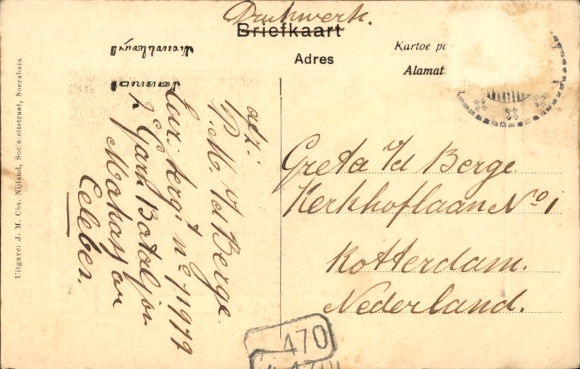 Drukwerk.
Briefkaart
Adres
Kartoe po
Alamat.
Uitgave: J. M. Chs. Nijland, Societeitstraat, Soerabaia
afz:
P.M. v/d Berge.
Eur. sergt no 71977
2e Garn Bataljon
Makassar
Celebes.
Greta v/d Berge
Kerkhoflaan No 1
Rotterdam.
Nederland.
470